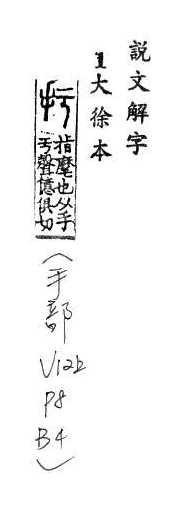 説文解字
1大徐本
扜
指麾也从手
亏聲億俱切
(手部
V12上
P8
B4)